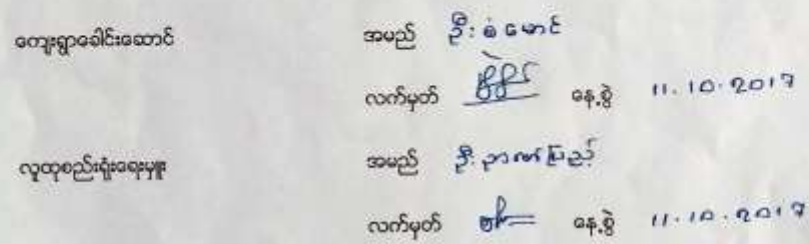 ကျေးရွာခေါင်းဆောင် အမည် ဦးစံမောင်
လက်မှတ် နေ့စွဲ 11.10.2017
လူထုစည်းရုံးရေးမှူး အမည် ဦးဉာဏ်ပြည့်
လက်မှတ် နေ့စွဲ 11.10.2017